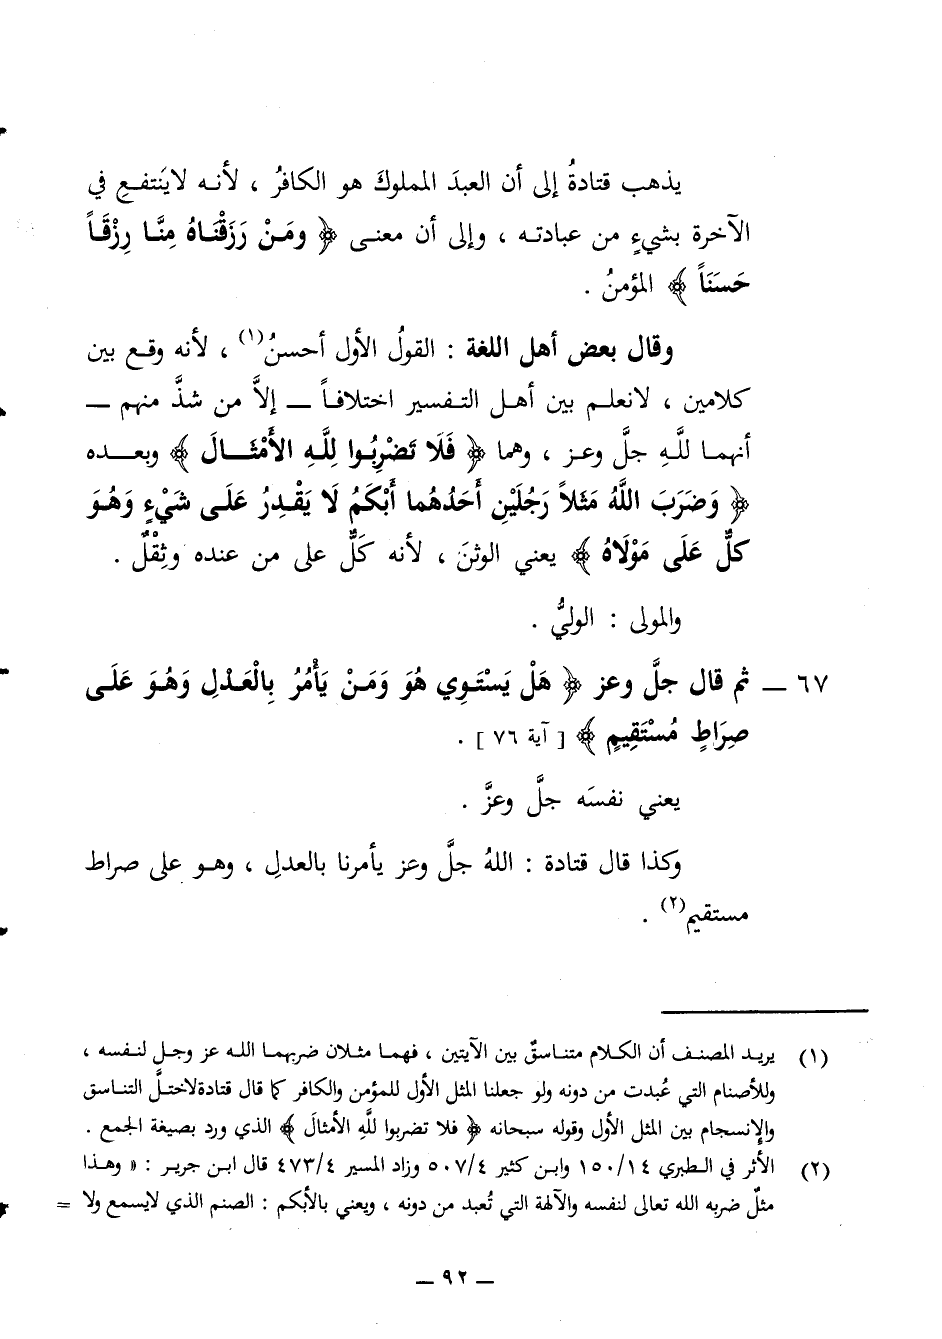 يذهب قتادةُ إلى أن العبدَ المملوكَ هو الكافرُ ، لأنه لايَنتفع في
الآخرة بشيءٍ من عبادته ، وإلى أن معنى ﴿ ومَنْ رَزَقْنَاهُ مِنَّا رِزْقَاً
حَسَنَاً ﴾ المؤمنُ .
وقال بعض أهل اللغة : القولُ الأول أحسنُ(١) ، لأنه وقع بين
كلامين ، لانعلم بين أهل التفسير اختلافاً ــ إلاَّ من شذَّ منهم ــ
أنهما للَّهِ جلَّ وعز ، وهما ﴿ فَلَا تَضْرِبُوا لِلَّهِ الأَمْثَالَ ﴾ وبعده
﴿ وَضَرَبَ اللَّهُ مَثَلاً رَجُلَيْنِ أَحَدُهُما أَبْكَمُ لَا يَقْدِرُ عَلَى شَيْءٍ وَهُوَ
كلٌّ عَلَى مَوْلَاهُ ﴾ يعني الوثنَ ، لأنه كَلٌّ على من عنده وثِقْلٌ .
والمولى : الوليُّ .
٦٧ ــ ثم قال جلَّ وعز ﴿ هَلْ يَسْتَوِي هُوَ وَمَنْ يَأْمُرُ بِالْعَدْلِ وَهُوَ عَلَى
صِرَاطٍ مُسْتَقِيمٍ ﴾ [ آية ٧٦ ] .
يعني نفسَه جلَّ وعزَّ .
وكذا قال قتادة : اللهُ جلَّ وعز يأمرنا بالعدلِ ، وهو على صراط
مستقيم(٢) .
(١) يريد المصنف أن الكلام متناسقٌ بين الآيتين ، فهما مثلان ضربهما الله عز وجل لنفسه ،
وللأصنام التي عُبدت من دونه ولو جعلنا المثل الأول للمؤمن والكافر كما قال قتادةلاختلَّ التناسق
والإنسجام بين المثل الأول وقوله سبحانه ﴿ فلا تضربوا للَّهِ الأمثالَ ﴾ الذي ورد بصيغة الجمع .
(٢) الأثر في الطبري ١٥٠/١٤ وابن كثير ٥٠٧/٤ وزاد المسير ٤٧٣/٤ قال ابن جرير : « وهذا
مثلٌ ضربه الله تعالى لنفسه والآلهة التي تُعبد من دونه ، ويعني بالأبكم : الصنم الذي لايسمع ولا =
ــ ٩٢ ــ